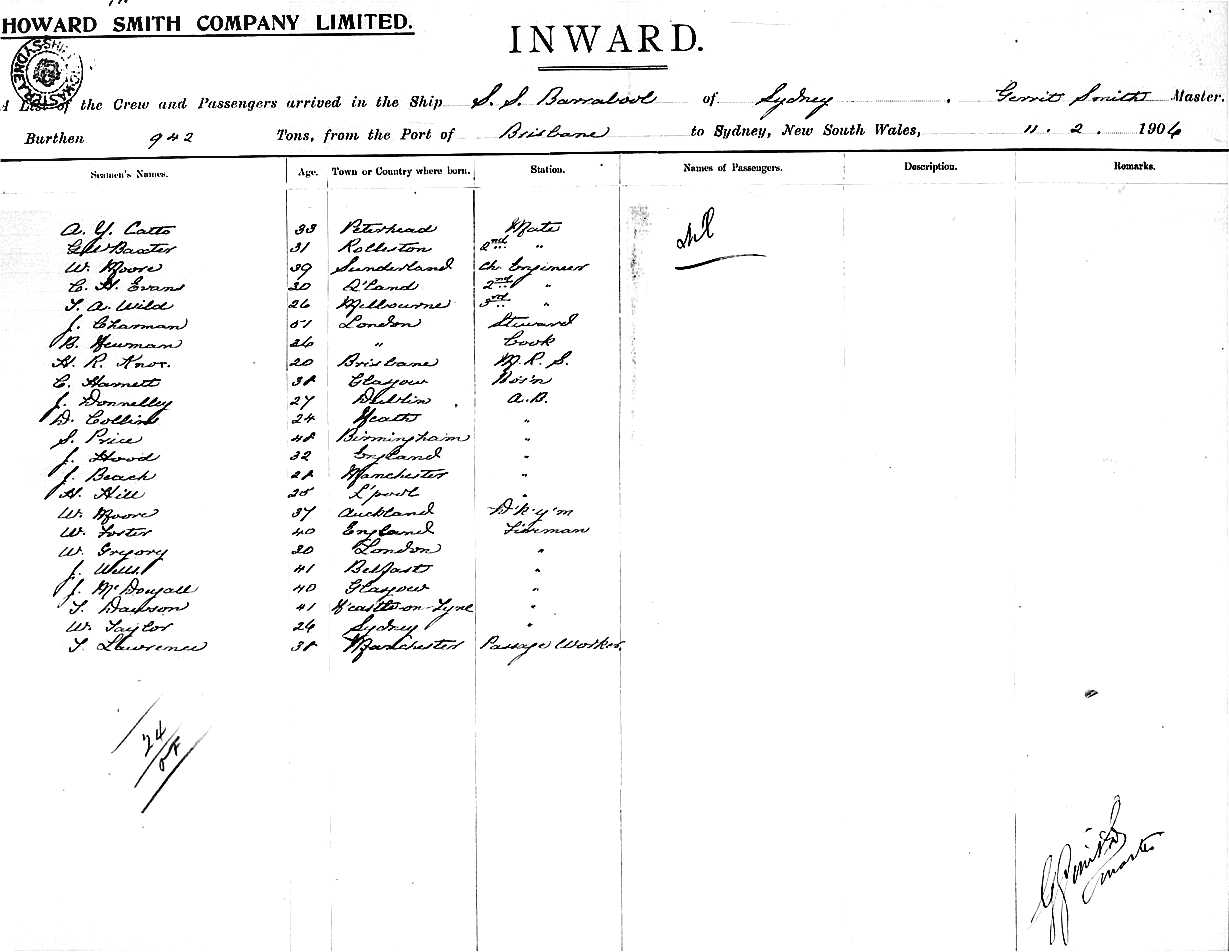 HOWARD SMITH COMPANY LIMITED.
INWARD.
A List of the Crew and Passengers arrived in the Ship S. S. Barrabool of Sydney. Gerrit Smith Master.
Burthen 942 Tons, from the Port of Brisbane to Sydney, New South Wales, 11. 2. 1906
Seamen's Names. Age. Town or Country where born. Station. Names of Passengers. Description. Remarks.
A. Y. Catto 33 Peterhead Mate Nil
G W Baxter 31 Rolleston 2nd "
W. Moore 39 Sunderland Ch. Engineer
C. H. Evans 30 Q'land 2nd "
T. A. Wild 26 Melbourne 3rd "
J. Charman 51 London Steward
B. Newman 26 " Cook
H. R. Knox. 20 Brisbane M. R. S.
C. Harnett 38 Glasgow Bos'n
J. Donnelley 27 Dublin A. B.
D. Collins 24 "
S. Price 48 Birmingham "
J. Hood 32 England "
J. Beach 28 Manchester "
H. Hill 25 L'pool "
W. Moore 37 Auckland D'k'y'm
W. Foster 40 England Fireman
W. Gregory 20 London "
J. Wells 41 Belfast "
J. McDougall 40 Glasgow "
T. Dawson 41 N'castle-on-Tyne "
W. Taylor 26 Sydney "
T. Lawrence 38 Manchester Passage Worker.
24
G Smith
Master